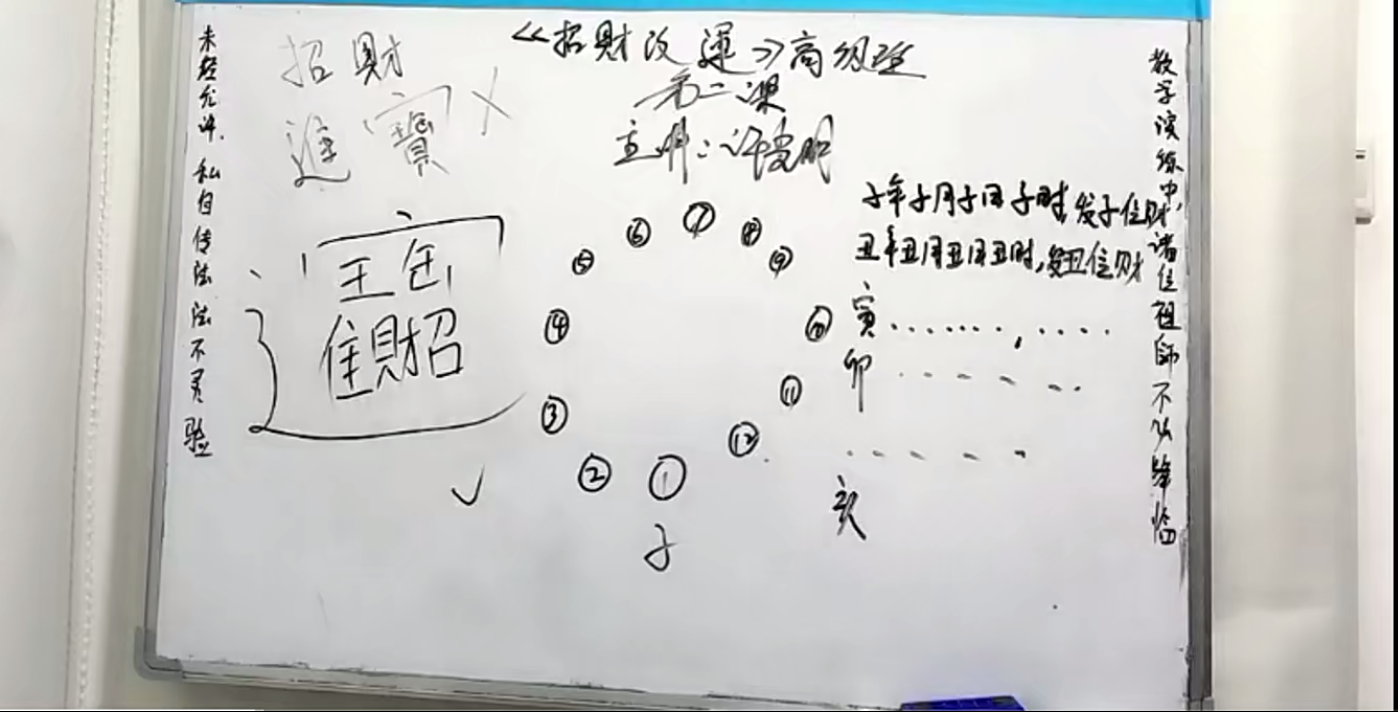 未经允许,私自传法法不灵验
招财
進寶 ×
《招财改運》高级班
第二课
主讲:许贵明
教学演练中,诸位祖师不必降临
子年子月子日子时,发子位财
丑年丑月丑日丑时,发丑位财
寅.......,....
卯.....
.....
亥
①
②
③
④
⑤
⑥
⑦
⑧
⑨
⑩
⑪
⑫
子
財招
✓